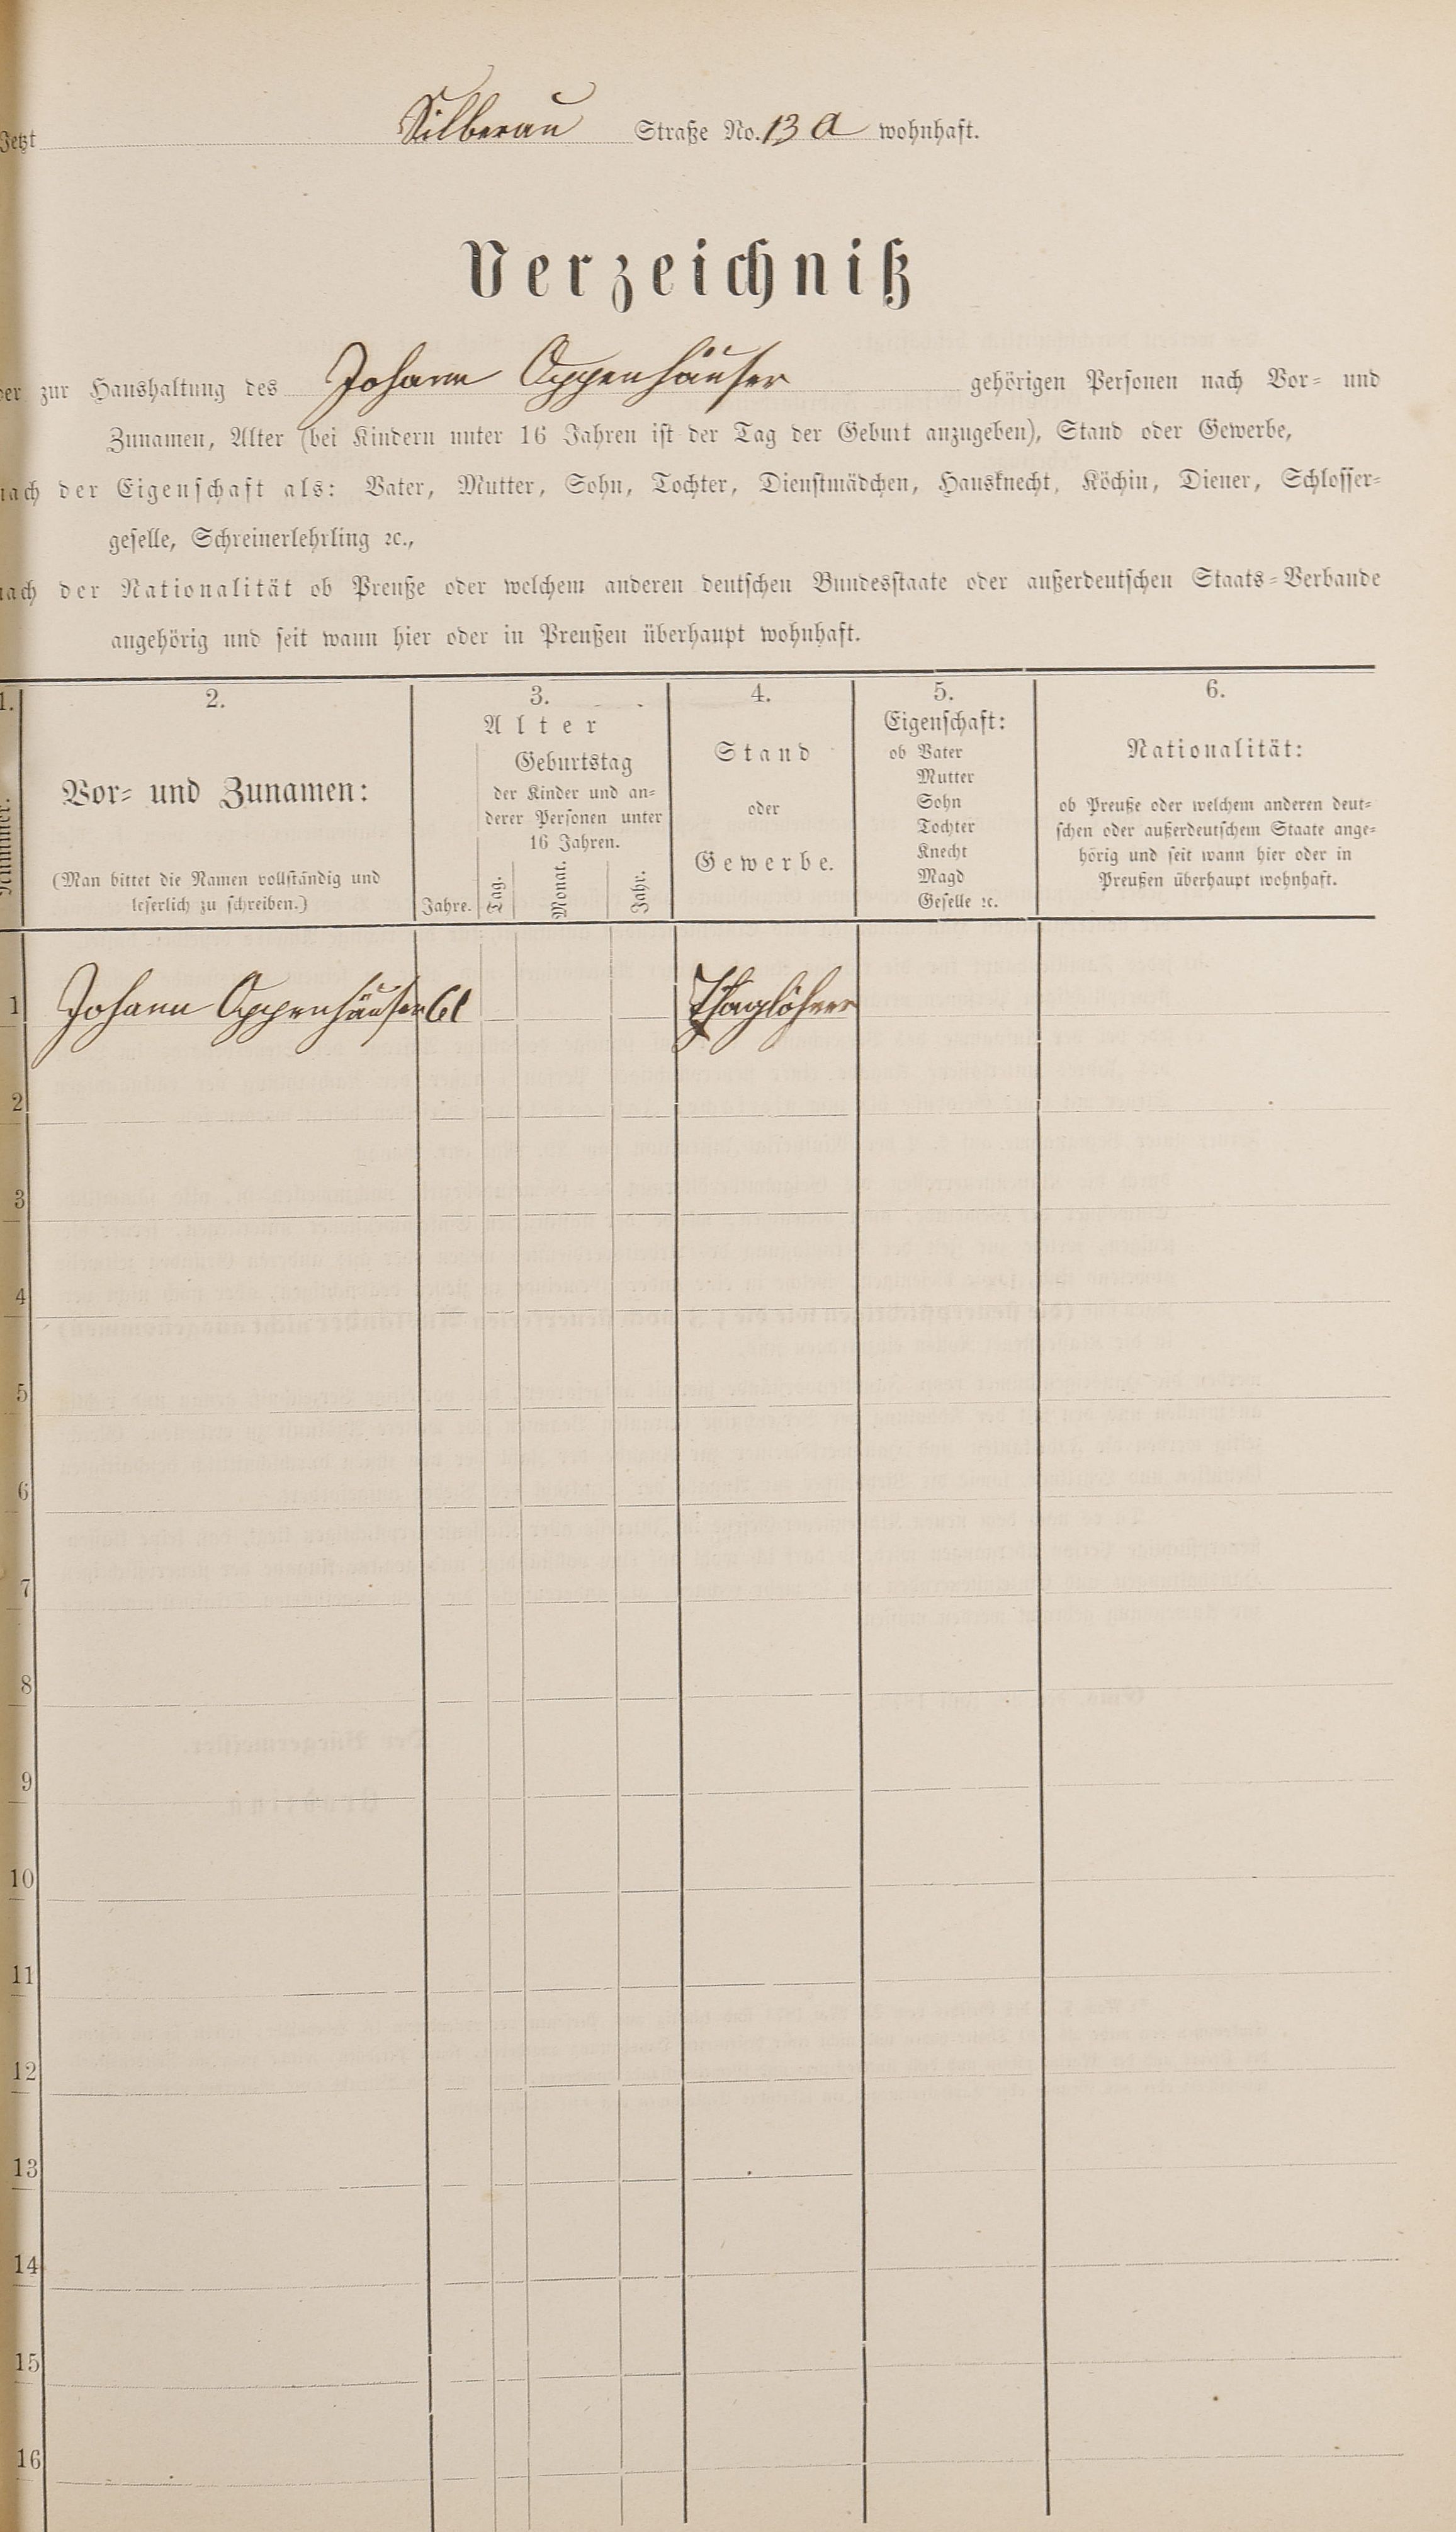 Jetzt Silberau Straße No. 13 a wohnhaft.
Verzeichniß
der zur Haushaltung des Johann Oppenhäuser gehörigen Personen nach Vor- und
Zunamen, Alter (bei Kindern unter 16 Jahren ist der Tag der Geburt anzugeben), Stand oder Gewerbe,
nach der Eigenschaft als: Vater, Mutter, Sohn, Tochter, Dienstmädchen, Hausknecht, Köchin, Diener, Schlosser-
geselle, Schreinerlehrling ꝛc.,
nach der Nationalität ob Preuße oder welchem anderen deutschen Bundesstaate oder außerdeutschen Staats-Verbande
angehörig und seit wann hier oder in Preußen überhaupt wohnhaft.
1.
Nummer.
2.
Vor- und Zunamen:
(Man bittet die Namen vollständig und
leserlich zu schreiben.)
3.
Alter
Jahre.
Geburtstag
der Kinder und an-
derer Personen unter
16 Jahren.
Tag.
Monat.
Jahr.
4.
Stand
oder
Gewerbe.
5.
Eigenschaft:
ob Vater
Mutter
Sohn
Tochter
Knecht
Magd
Geselle ꝛc.
6.
Nationalität:
ob Preuße oder welchem anderen deut-
schen oder außerdeutschem Staate ange-
hörig und seit wann hier oder in
Preußen überhaupt wohnhaft.
1 Johann Oppenhäuser 61 Thaglöhner
2
3
4
5
6
7
8
9
10
11
12
13
14
15
16